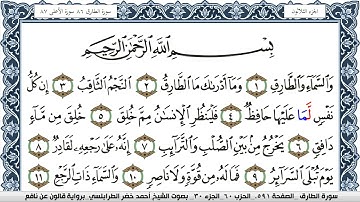 الجزء الثلاثون
سورة الطارق ٨٦ سورة الأعلى ٨٧
بِسْمِ اللَّهِ الرَّحْمَٰنِ الرَّحِيمِ
وَالسَّمَآءِ وَالطَّارِقِ ١ وَمَآ أَدْر۪ىٰكَ مَا الطَّارِقُ ٢ النَّجْمُ الثَّاقِبُ ٣ إِن كُلُّ
نَفْسٍ لَمَا عَلَيْهَا حَافِظٌ ٤ فَلْيَنظُرِ الْإِنسَٰنُ مِمَّ خُلِقَ ٥ خُلِقَ مِن مَّآءٍ
دَافِقٍ ٦ يَخْرُجُ مِنۢ بَيْنِ الصُّلْبِ وَالتَّرَآئِبِ ٧ إِنَّهُۥ عَلَىٰ رَجْعِهِۦ لَقَادِرٌ ٨
يَوْمَ تُبْلَى السَّرَآئِرُ ٩ فَمَا لَهُۥ مِن قُوَّةٍ وَلَا نَاصِرٍ ١٠ وَالسَّمَآءِ ذَاتِ الرَّجْعِ ١١
سورة الطارق الصفحة ٥٩١ الحزب ٦٠ الجزء ٣٠ بصوت الشيخ أحمد خضر الطرابلسي برواية قالون عن نافع